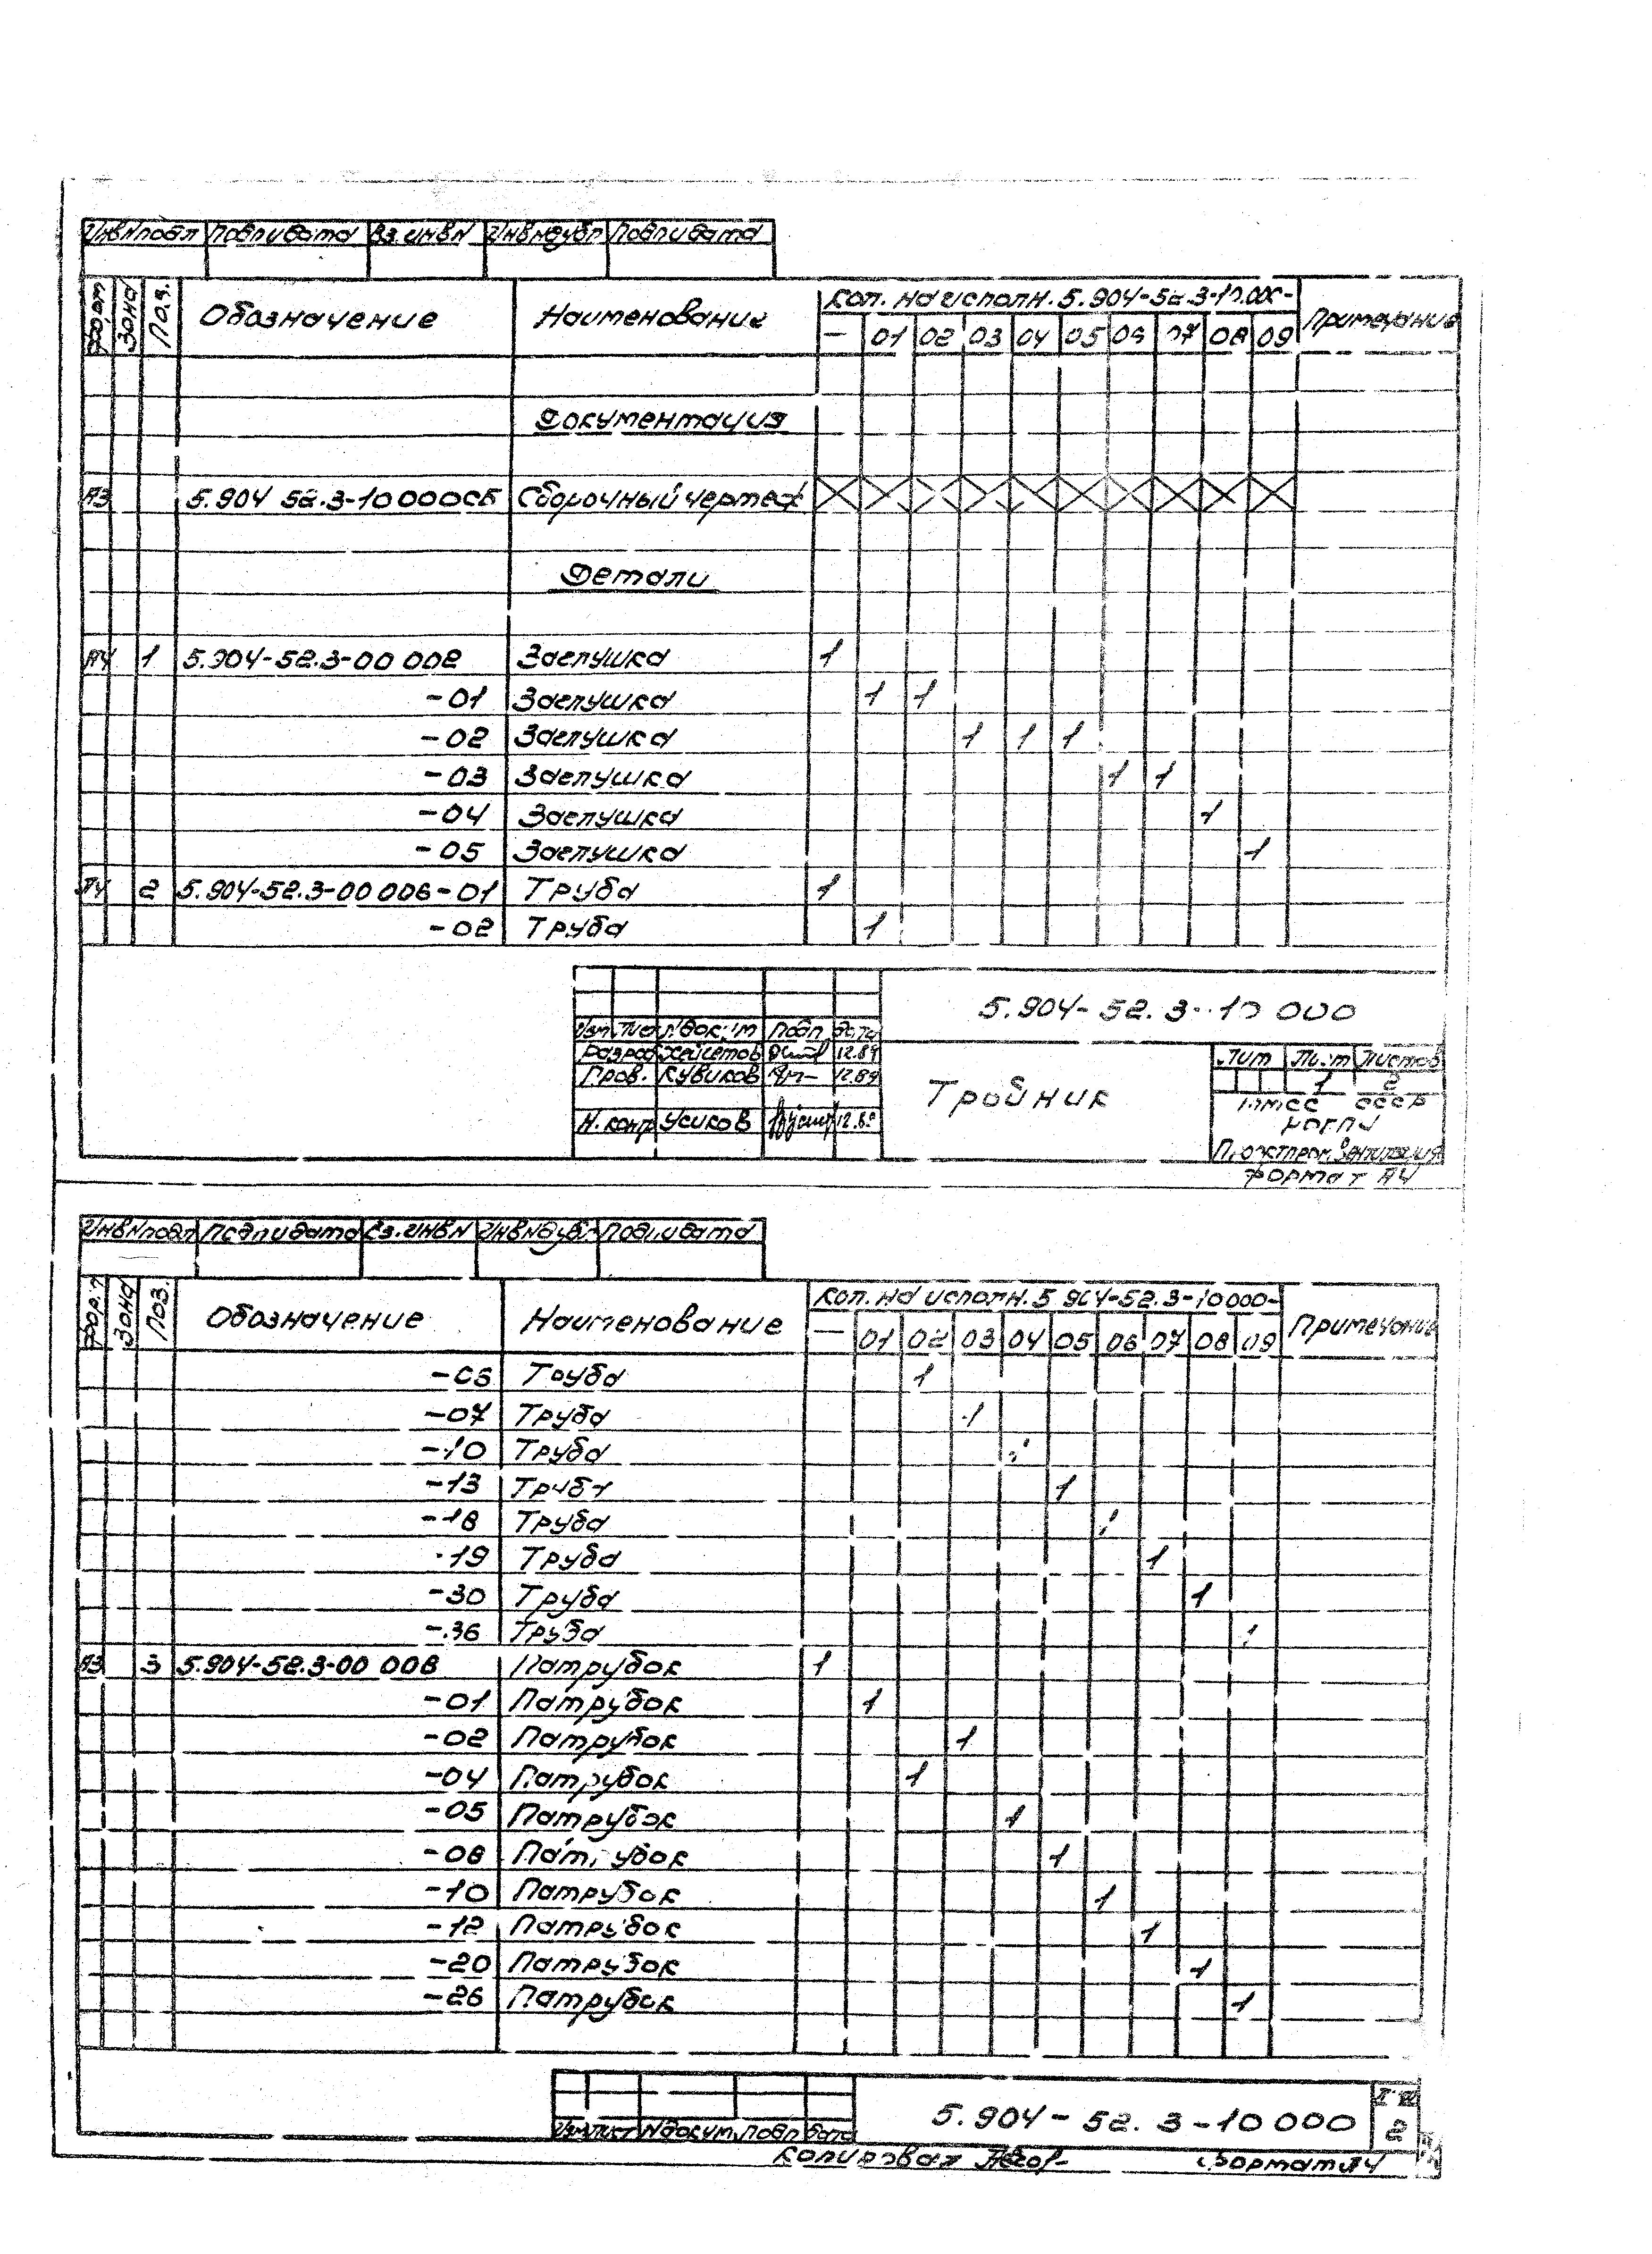 Инв№подл Подп.и дата Вз.инв№ Инв№дубл Подп.и дата
Формат Зона Поз. Обозначение Наименование Кол. на исполн. 5.904-52.3-10.000- Примечание
— 01 02 03 04 05 06 07 08 09
Документация
А3 5.904 52.3-10 000СБ Сборочный чертеж
Детали
А4 1 5.904-52.3-00 002 Заглушка 1
-01 Заглушка 1 1
-02 Заглушка 1 1 1
-03 Заглушка 1 1
-04 Заглушка 1
-05 Заглушка 1
А4 2 5.904-52.3-00 006-01 Труба 1
-02 Труба 1
5.904-52.3-10 000
Изм Лист № докум Подп. Дата
Разраб Хейсетов 12.89
Пров. Кувиков 12.89
Н.контр Усиков 12.89
Тройник
Лит Лист Листов
1 2
ММСС СССР
Проектпромвентиляция
Формат А4
Инв№подл Подп.и дата Вз.инв№ Инв№дубл Подп.и дата
Форм. Зона Поз. Обозначение Наименование Кол. на исполн. 5.904-52.3-10000- Примечание
— 01 02 03 04 05 06 07 08 09
-06 Труба 1
-07 Труба 1
-10 Труба 1
-13 Труба 1
-18 Труба 1
-19 Труба 1
-30 Труба 1
-36 Труба 1
А3 3 5.904-52.3-00 008 Патрубок 1
-01 Патрубок 1
-02 Патрубок 1
-04 Патрубок 1
-05 Патрубок 1
-08 Патрубок 1
-10 Патрубок 1
-12 Патрубок 1
-20 Патрубок 1
-26 Патрубок 1
Изм Лист № докум. Подп Дата
5.904-52.3-10 000
Лист
2
Копировал Формат А4